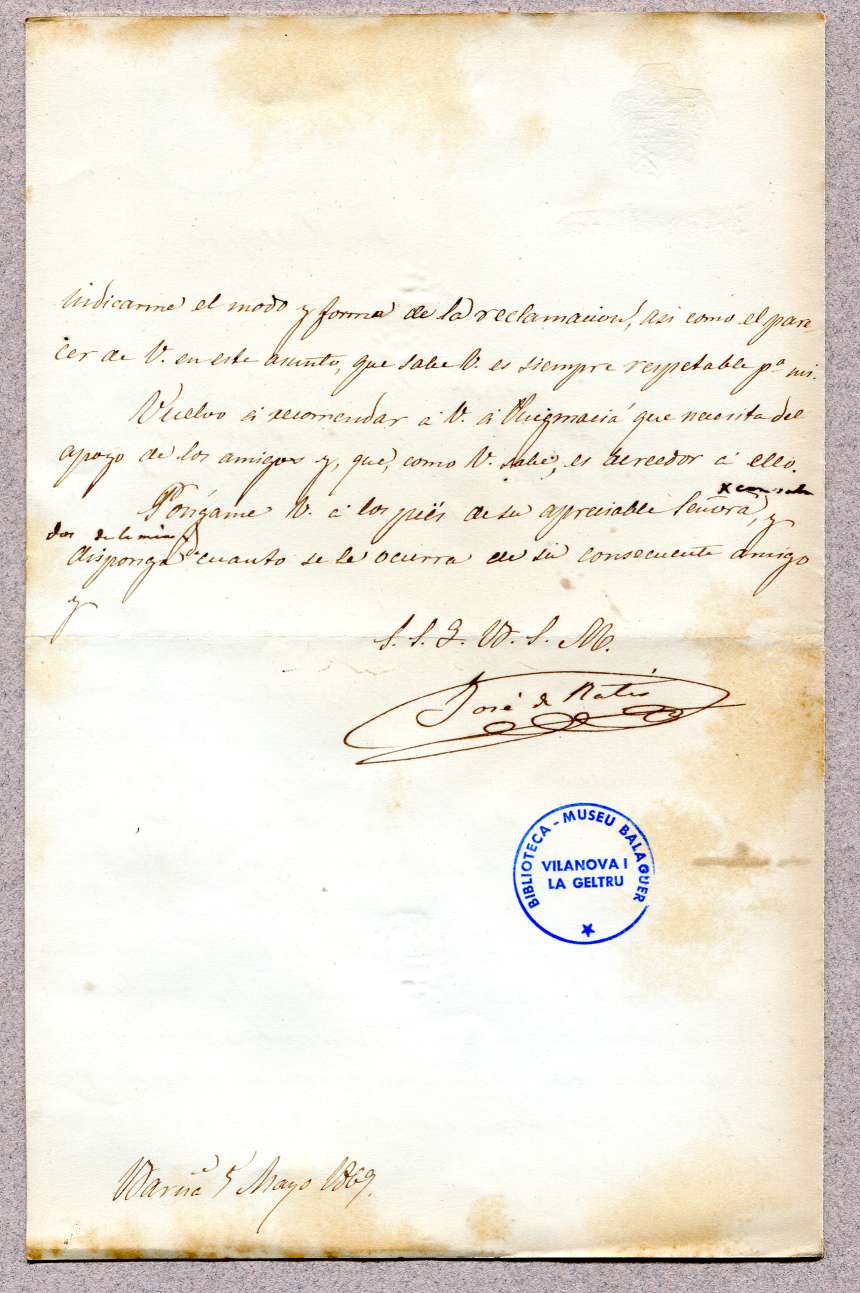 indicarme el modo y forma de la reclamacion, asi como el pare
cer de V. en este asunto, que sabe V. es siempre respetable pª mi.
Vuelvo á recomendar á V. á Puigmaciá que necesita del
apoyo de los amigos y, que, como V. sabe, es acreedor á ello.
x con salu
Póngame V. á los piés de su apreciable Señora, y
dos de la mia
disponga cuanto se le ocurra de su consecuente amigo
y
S. S. Q. B. S. M.
José de Ratés
BIBLIOTECA - MUSEU BALAGUER
VILANOVA I
LA GELTRU
Barnª 5 Mayo 1869.